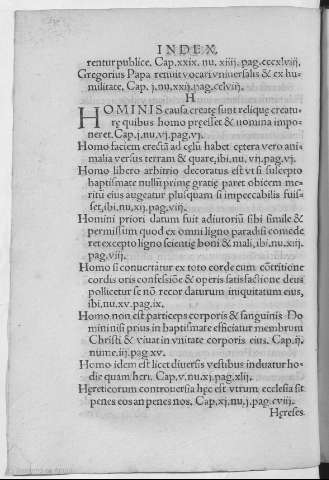 INDEX.
rentur publice. Cap.xxix. nu. xiiij. pag.cccxlviij.
Gregorius Papa renuit vocari vniuersalis & ex hu-
militate, Cap. j.nu.xxij.pag.cclviij.
H
HOMINIS causa creatę sunt reliquę creatu-
rę quibus homo pręesset & nomina impo-
neret. Cap.j.nu.vj.pag.vj.
Homo faciem erectã ad cęlũ habet cętera vero ani-
malia versus terram & quare, ibi.nu.vij.pag.vj.
Homo libero arbitrio decoratus est vt si suscepto
baptismate nullũ primę gratię paret obicem me-
ritũ eius augeatur plusquam si impeccabilis fuis-
set, ibi.nu.xij.pag.viij.
Homini priori datum fuit adiutoriũ sibi simile &
permissum quod ex omni ligno paradisi comede
ret excepto ligno scientię boni & mali, ibi.nu.xiij.
pag.viij.
Homo si conuertatur ex toto corde cum cõtritione
cordis oris confessiõe & operis satisfactione deus
pollicetur se nõ recordaturum iniquitatum eius,
ibi.nu.xv.pag.ix.
Homo non est particeps corporis & sanguinis Do
mini nisi prius in baptismate efficiatur membrum
Christi & viuat in vnitate corporis eius. Cap.ij.
nume.iij.pag.xv.
Homo idem est licet diuersis vestibus induatur ho-
die quam heri. Cap.v.nu.xj.pag.xlij.
Hęreticorum controuersia hęc est vtrum ecclesia sit
penes eos an penes nos. Cap.xj.nu.j.pag.cviij.
Hęreses